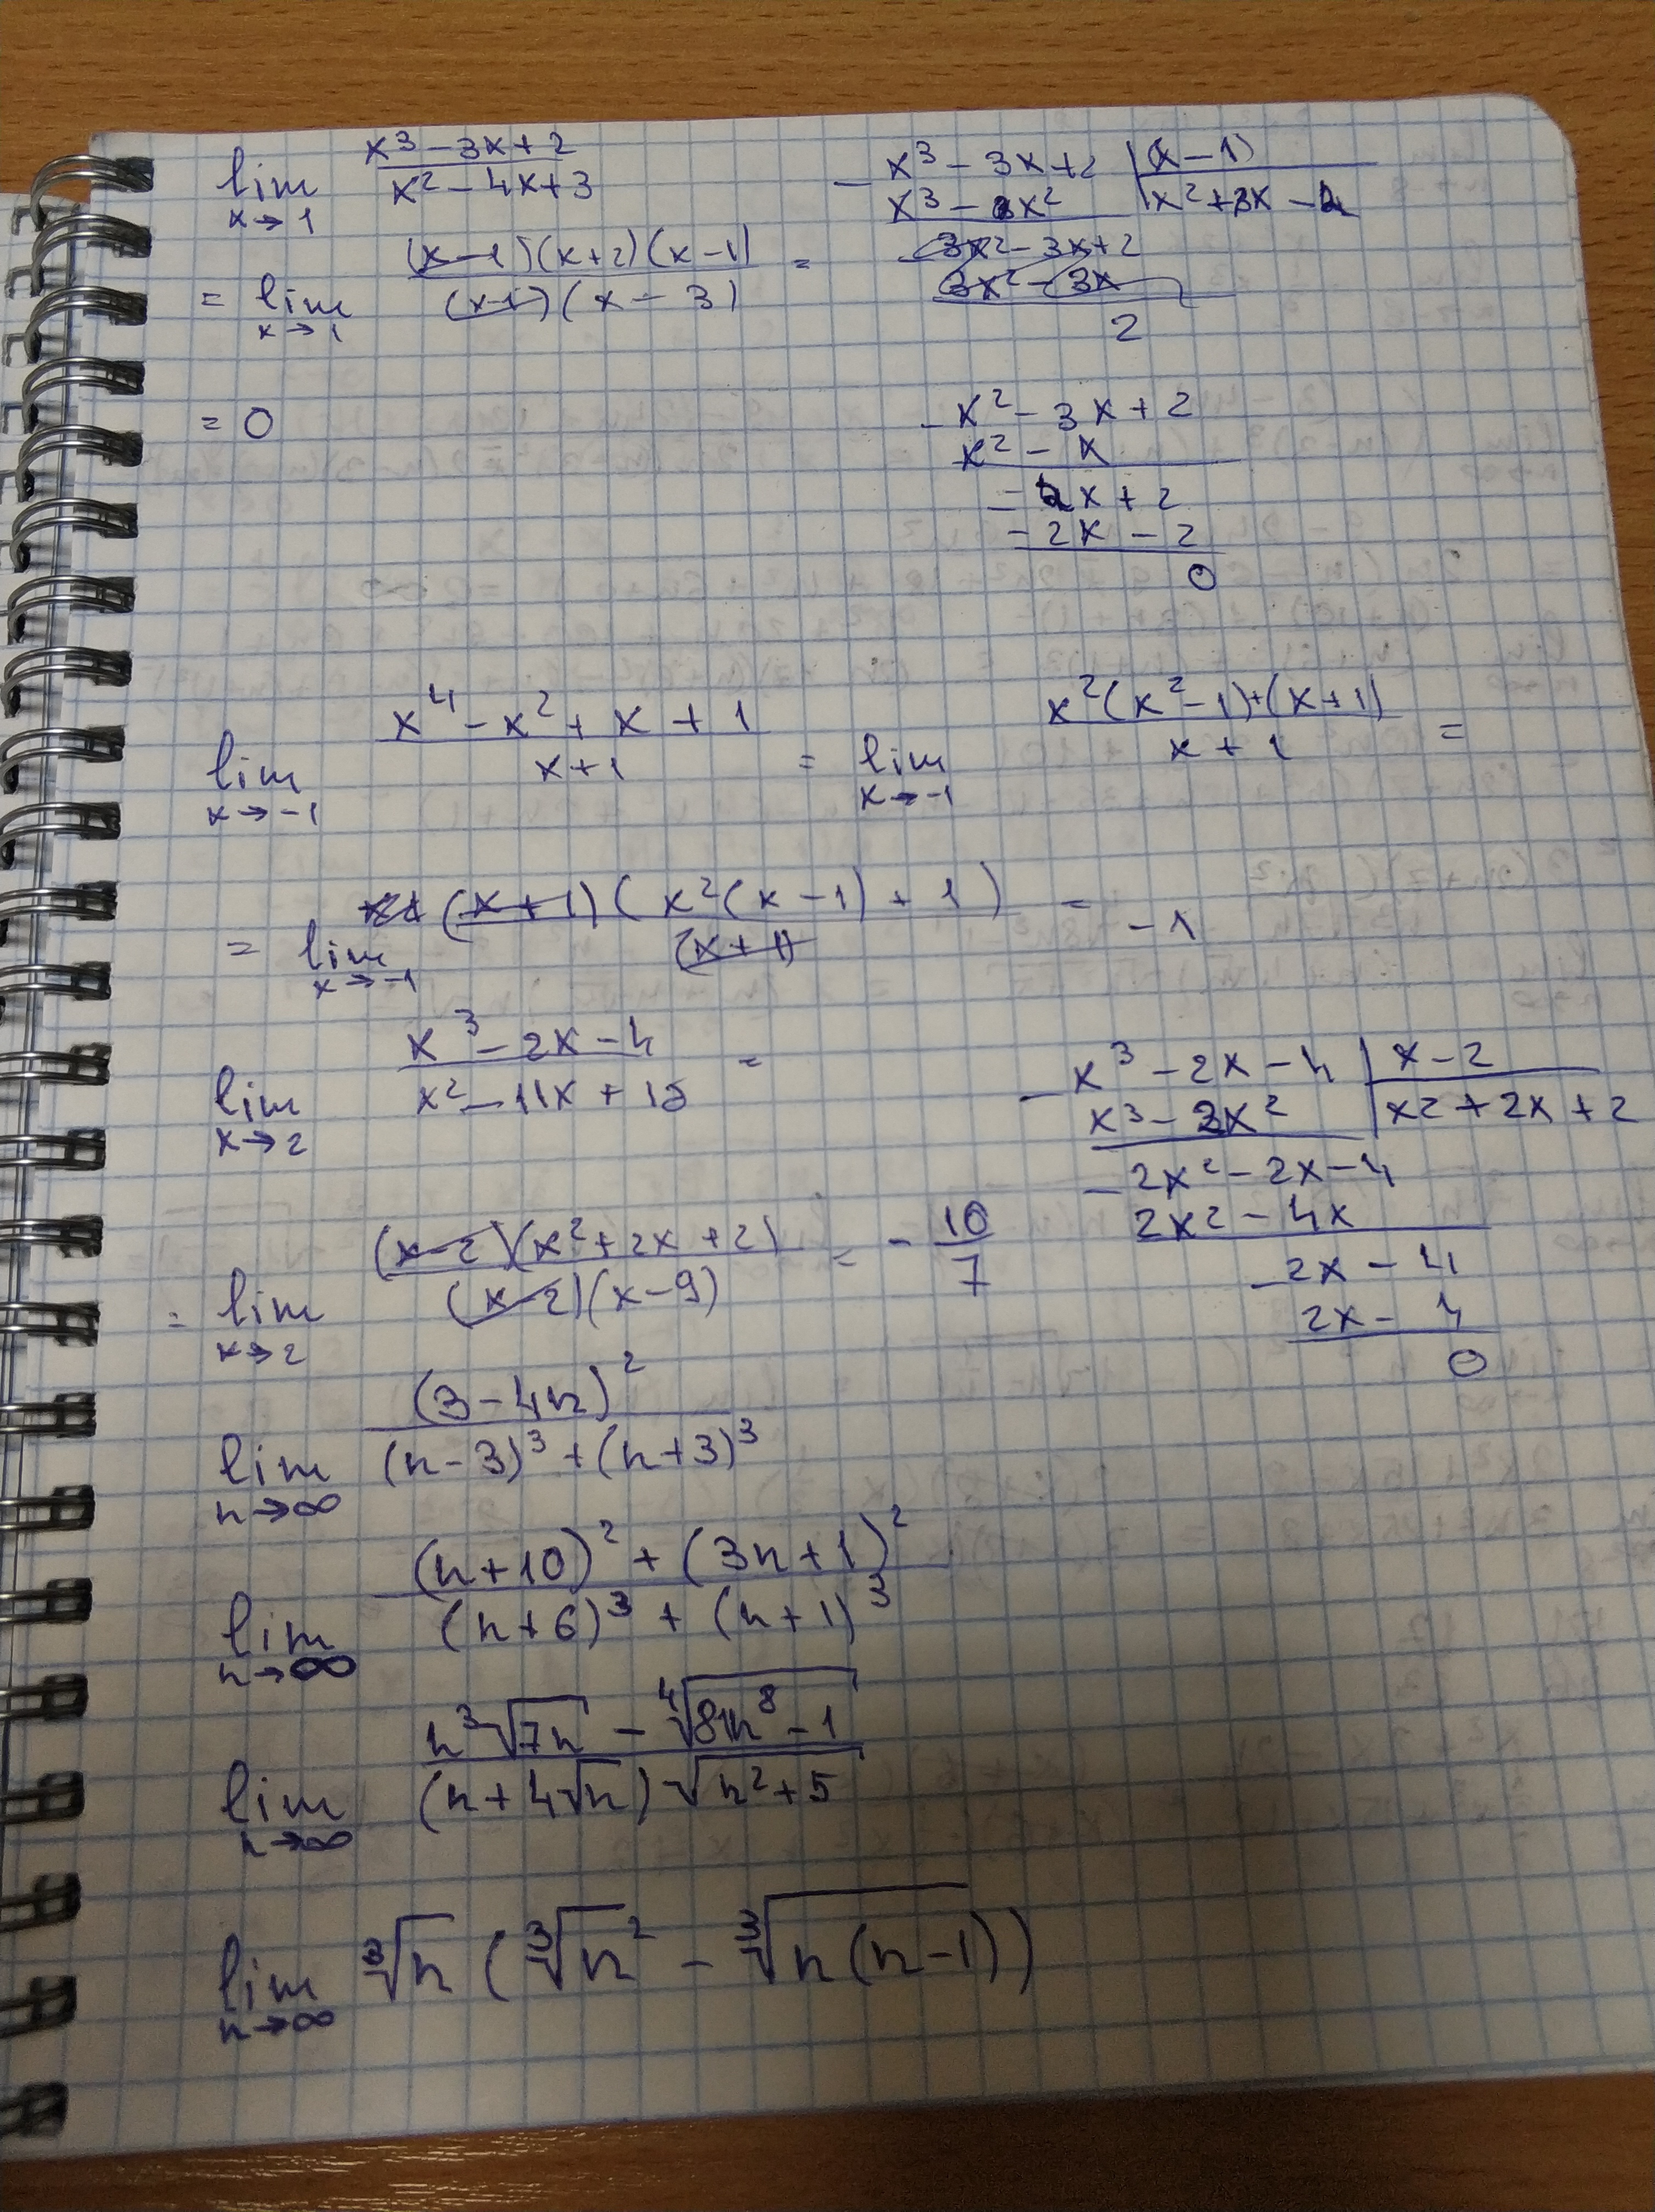 lim x→1 (x³ − 3x + 2)/(x² − 4x + 3)
= lim x→1 (x−1)(x+2)(x−1)/(x−1)(x−3) =
= 0
x³ − 3x + 2 | (x−1)
x³ − x² | x²+x−2
3x² − 3x + 2
3x² − 3x
2
− x² − 3x + 2
x² − x
− 2x + 2
− 2x − 2
0
lim x→−1 (x⁴ − x² + x + 1)/(x+1) = lim x→−1 (x²(x²−1)+(x+1))/(x+1) =
= lim x→−1 (x+1)(x²(x−1)+1)/(x+1) = −1
lim x→2 (x³ − 2x − 4)/(x² − 11x + 18) =
− x³ − 2x − 4 | x−2
x³ − 2x² | x²+2x+2
− 2x² − 2x − 4
2x² − 4x
− 2x − 4
2x − 4
0
= lim x→2 (x−2)(x²+2x+2)/(x−2)(x−9) = − 10/7
lim n→∞ (3−4n)²/((n−3)³+(n+3)³)
lim n→∞ ((n+10)²+(3n+1)²)/((n+6)³+(n+1)³)
lim n→∞ (n ∛7n − ∜(81n⁸−1))/((n+4√n)√(n²+5))
lim n→∞ ∛n (∛n² − ∛(n(n−1)))